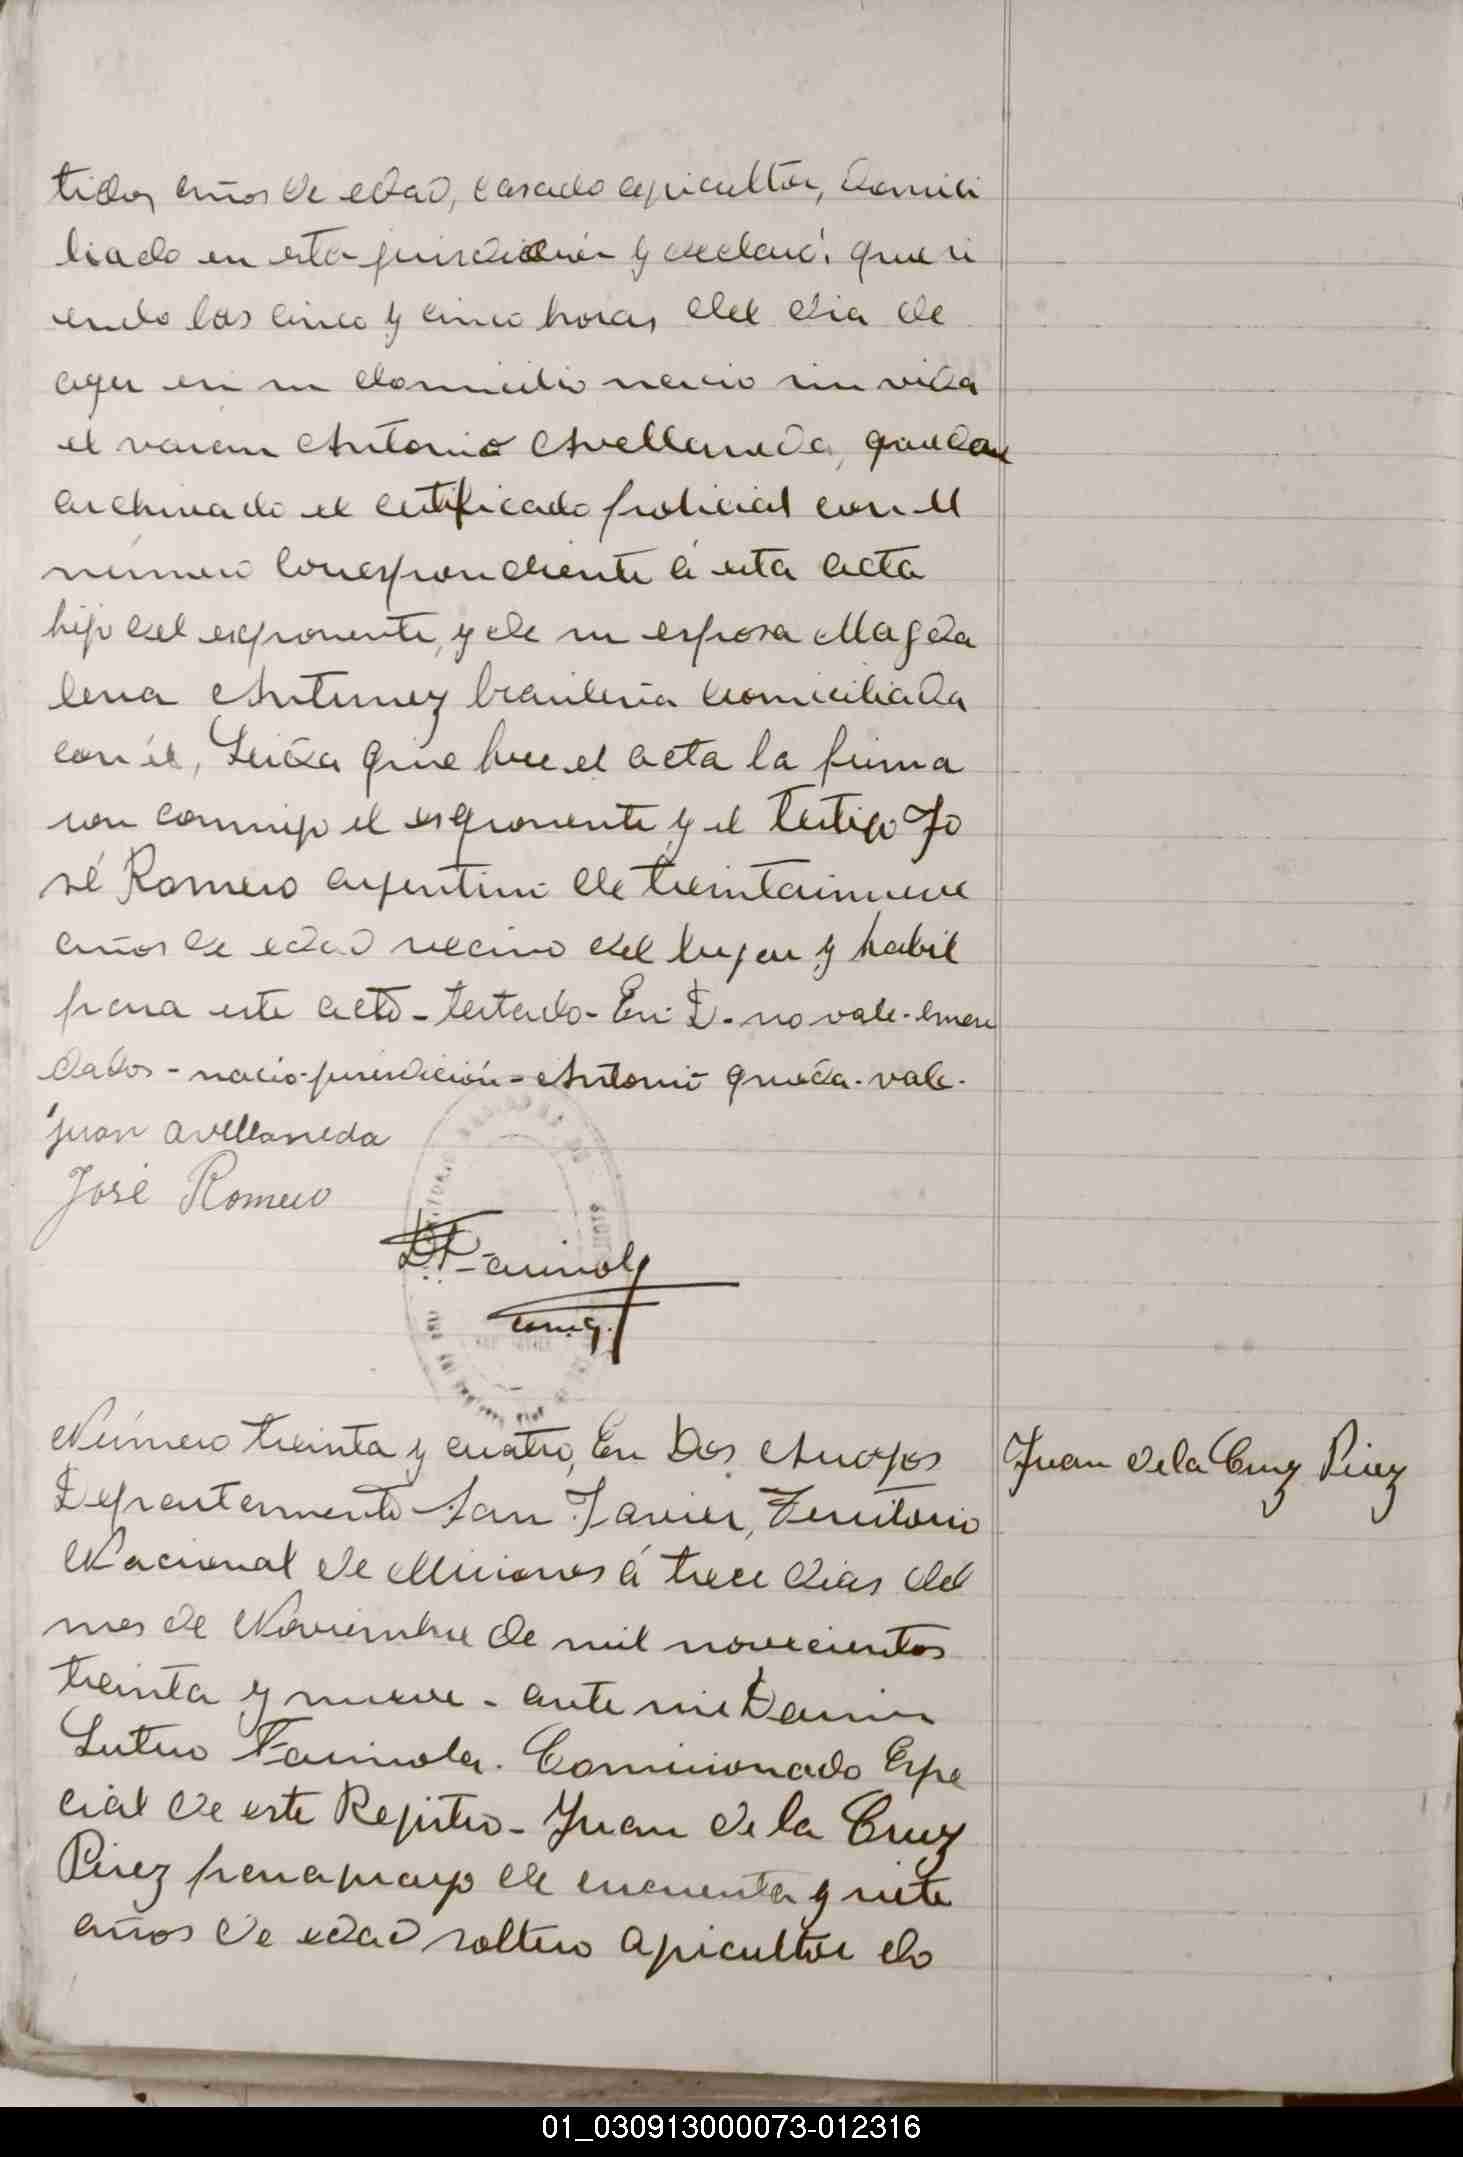 tidos años de edad, casado apicultor, domici
liado en esta jurisdicción y declaró: que si
endo las cinco y cinco horas del dia de
ayer en su domicilio nacio sin vida
el varon Antonio Avellaneda, quedan
archivado el certificado policial con el
número correspondiente á esta acta
hijo del exponente, y de su esposa Magda
lena Antunez brasileña domiciliada
con él, Leida que fue el acta la firma
ron conmigo el exponente y el testigo Jo
sé Romero argentino de treintainueve
años de edad vecino del lugar y habil
para este acto - testado - En: D - no vale - enmen
dados - nacio - jurisdicción - Antonio queda - vale.
Juan Avellaneda
José Romero
D L Farinola
Comis.
Número treinta y cuatro, En Dos Arroyos
Departamento San Javier, Territorio
Nacional de Misiones á trece dias del
mes de Noviembre de mil novecientos
treinta y nueve - ante mi Darwin
Lutero Farinola. Comisionado Espe
cial de este Registro - Juan de la Cruz
Pirez paraguayo de cincuenta y siete
años de edad soltero apicultor do
Juan de la Cruz Pirez
01_030913000073-012316